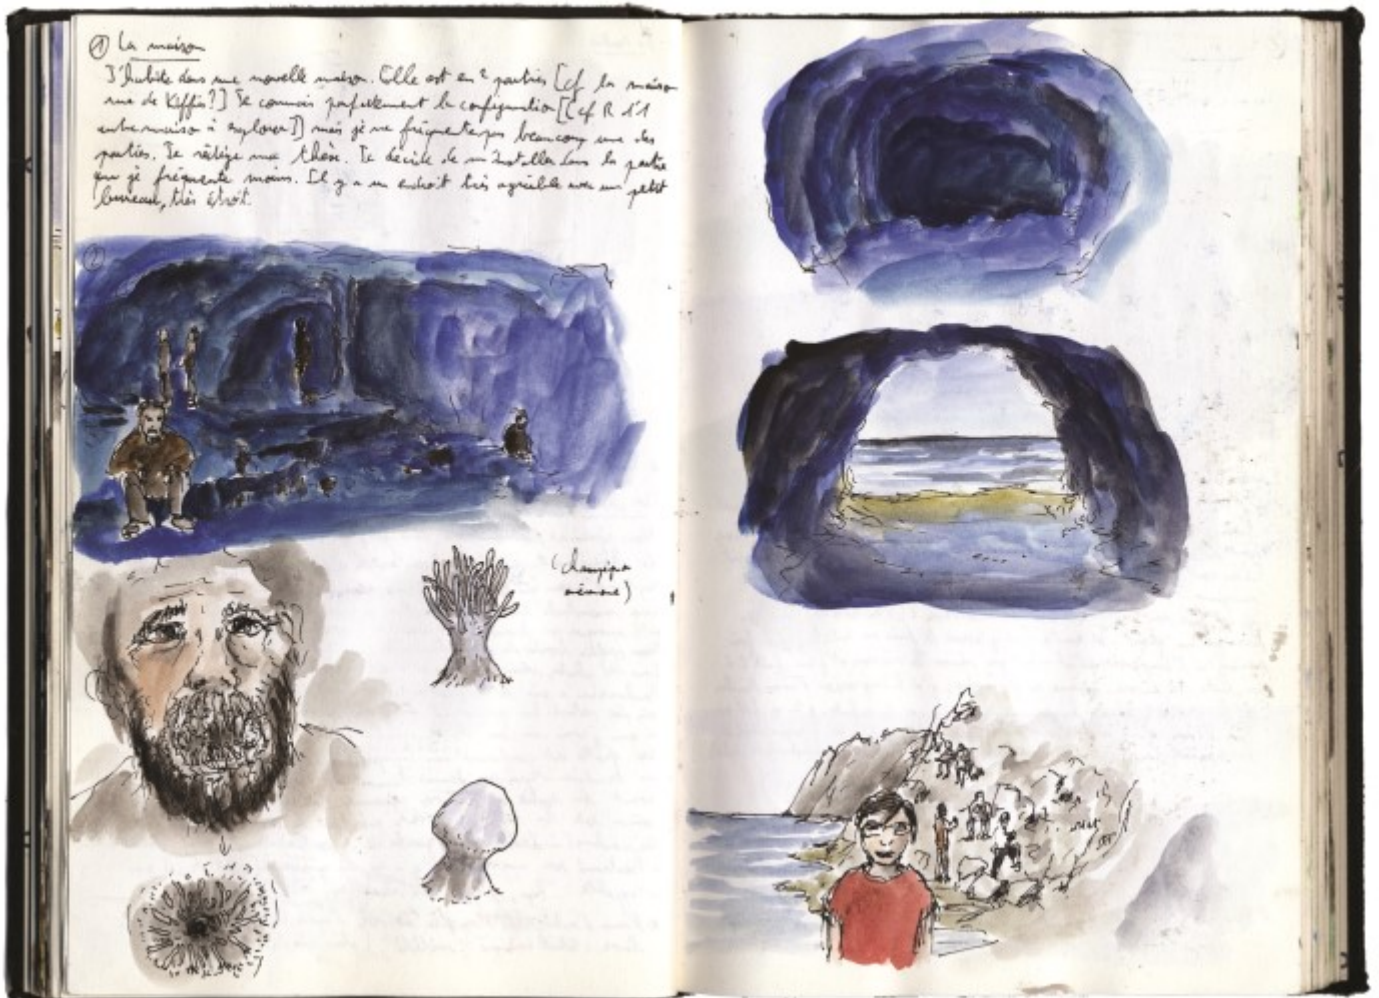 ① La maison
J'habite dans une nouvelle maison. Elle est en 2 parties [cf la maison
rue de Kiffis?] Je connais parfaitement la configuration [(cf R 1'1
autre maison à explorer)] mais je ne fréquente pas beaucoup une des
parties. Je rédige ma thèse. Je décide de m'installer dans la partie
que je fréquente moins. Il y a un endroit très agréable avec un petit
bureau, très étroit.
②
(champign